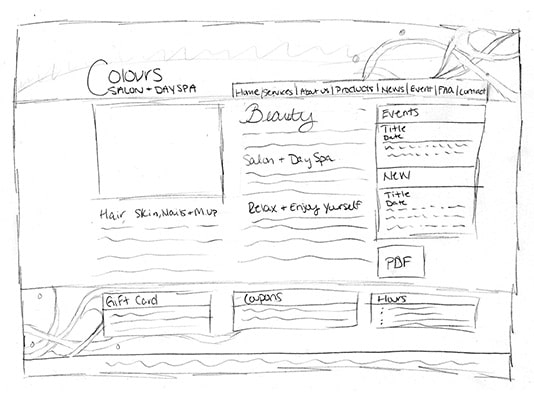 Colours
SALON + DAY SPA
Home | Services | About us | Products | News | Event | FAQ | Contact
Beauty
Salon + Day Spa
Relax + Enjoy Yourself
Hair, Skin, Nails + M.up
Events
Title
Date
New
Title
Date
PDF
Gift Card
Coupons
Hours